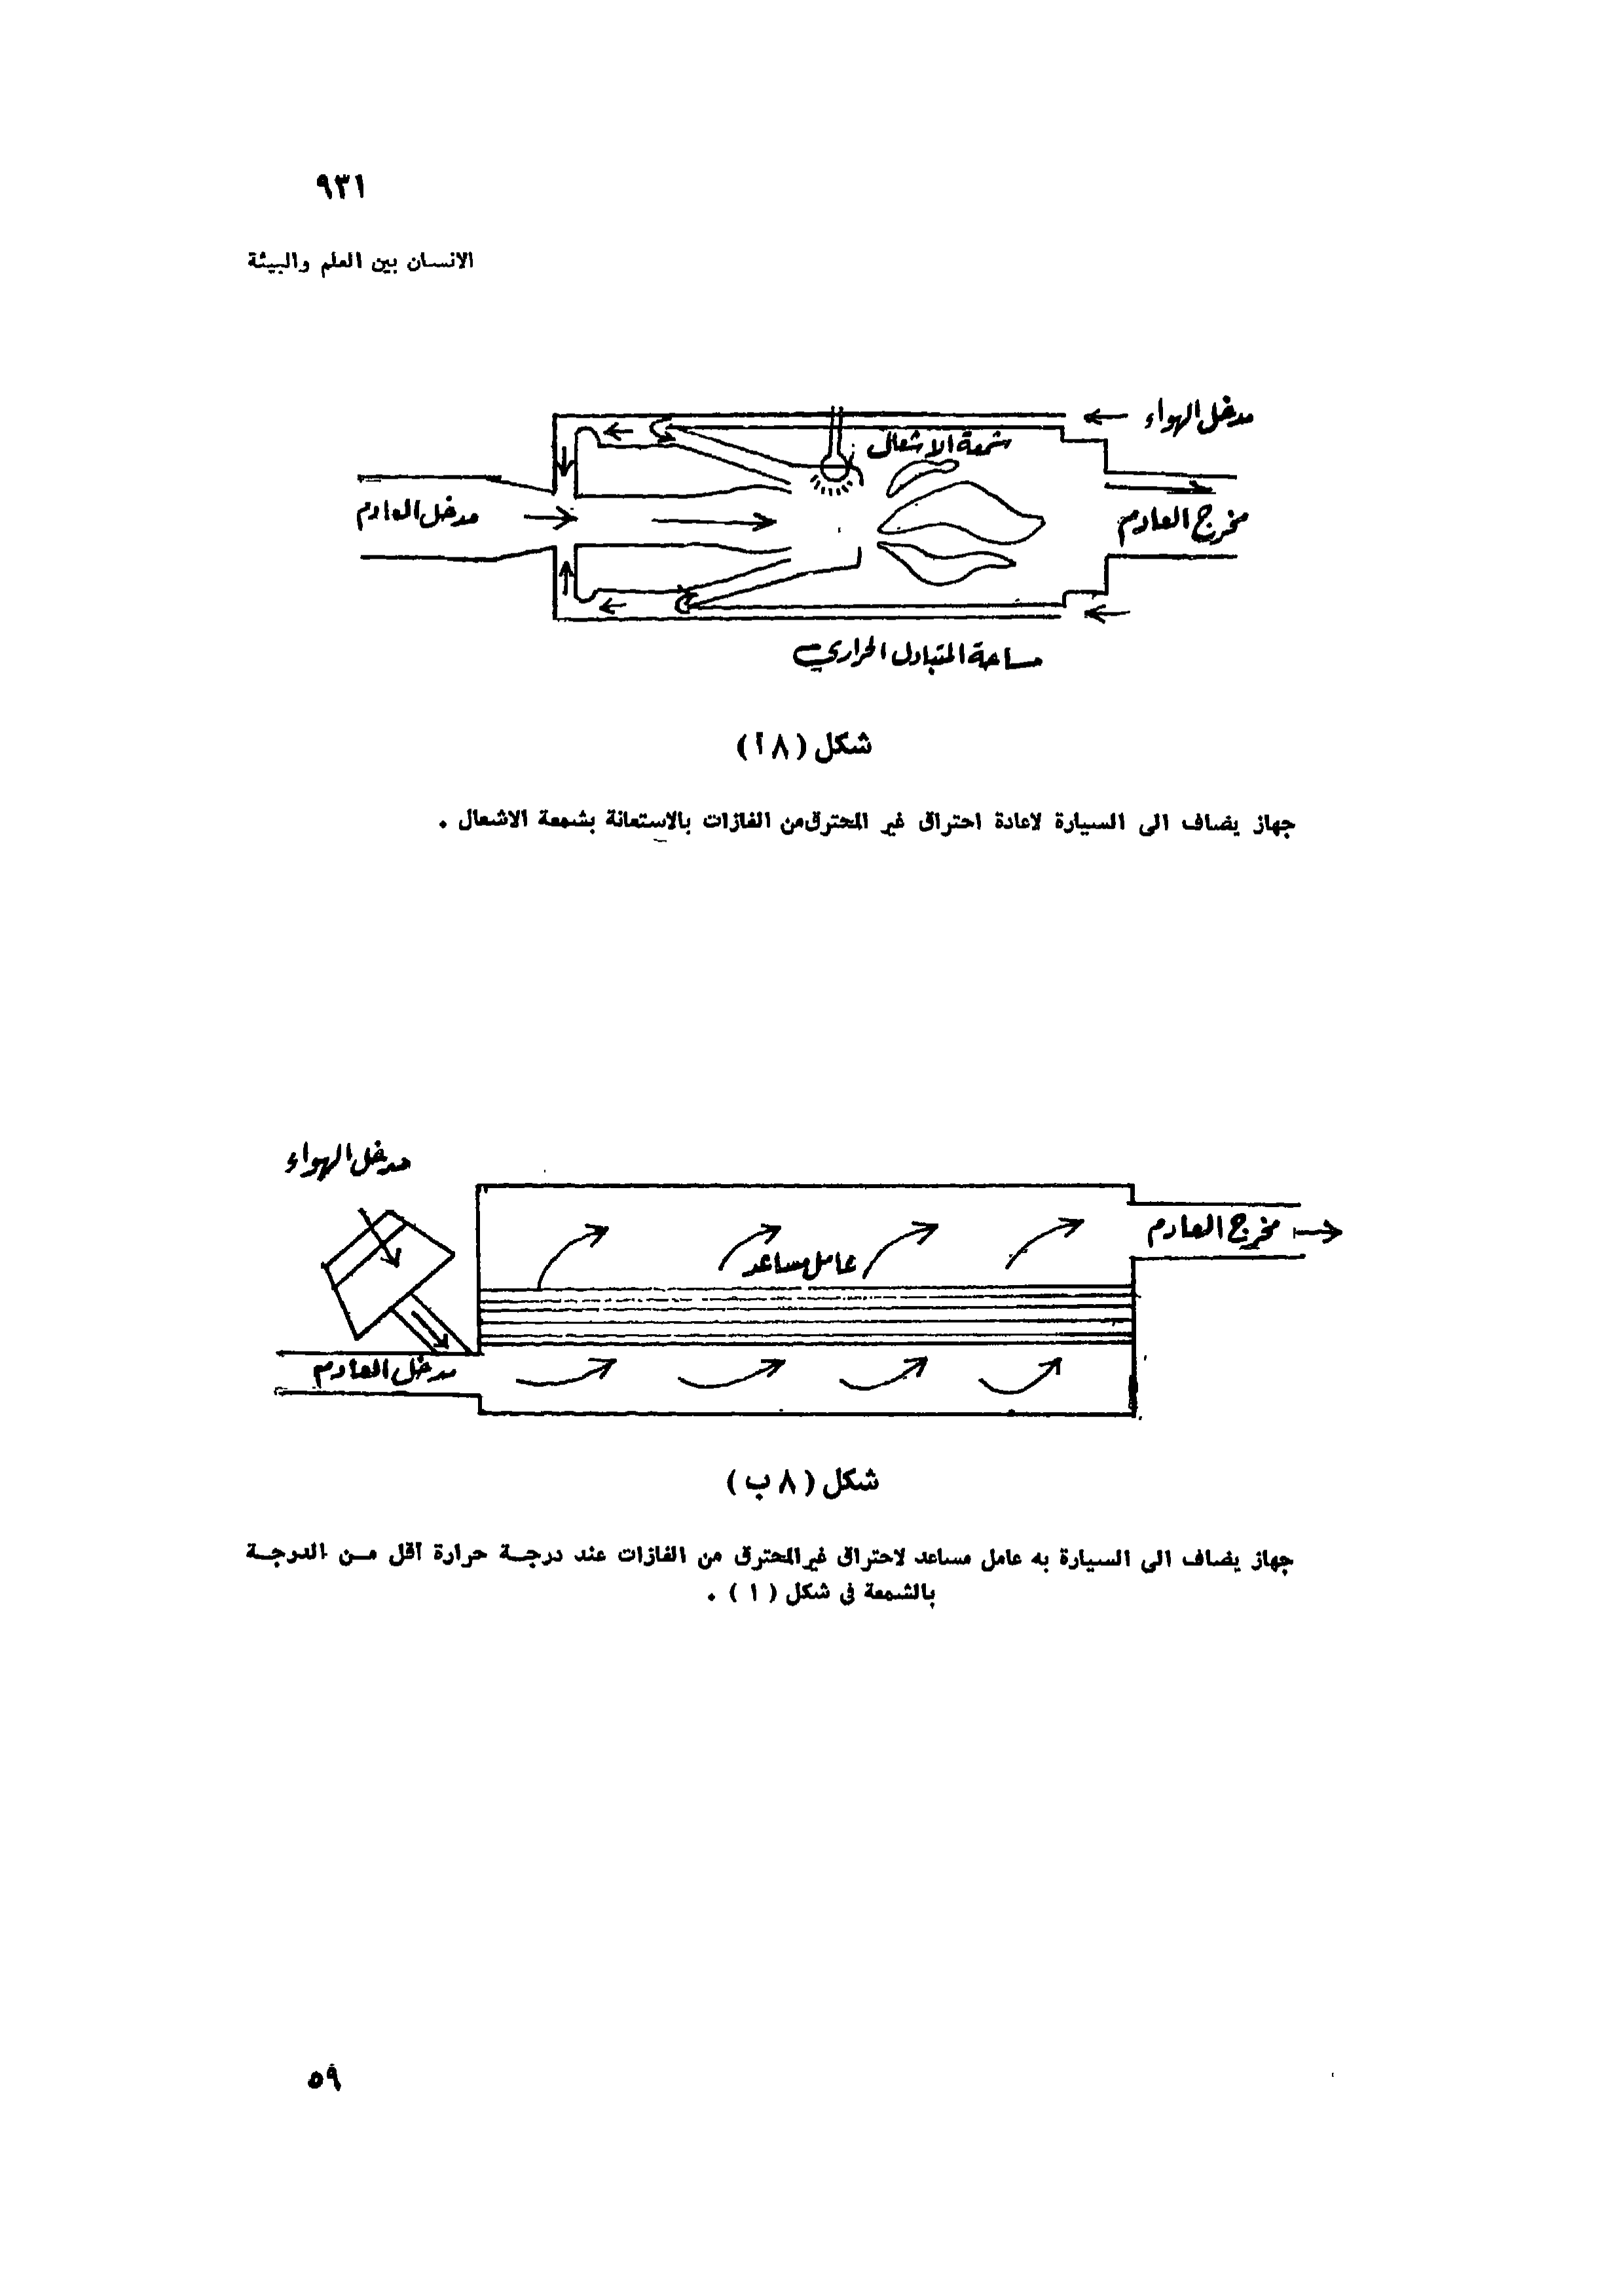 ٩٣١
الانسان بين العلم والبيئة
مدخل الهواء
شمعة الاشعال
مدخل العادم
مخرج العادم
مساحة المتبادل الحراري
شكل ( ٨ أ )
جهاز يضاف الى السيارة لاعادة احتراق غير المحترق من الغازات بالاستعانة بشمعة الاشعال .
مدخل الهواء
مخرج العادم
عامل مساعد
مدخل العادم
شكل ( ٨ ب )
جهاز يضاف الى السيارة به عامل مساعد لاحتراق غير المحترق من الغازات عند درجة حرارة أقل من الدرجة
بالشمعة في شكل ( ١ ) .
٥٩